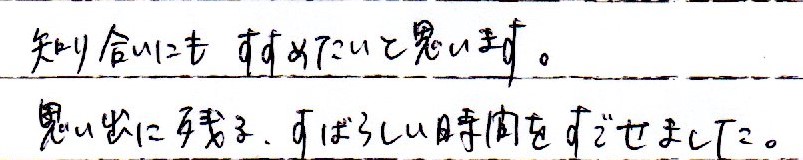 知り合いにも すすめたいと思います。
思い出に残る、すばらしい時間をすごせました。